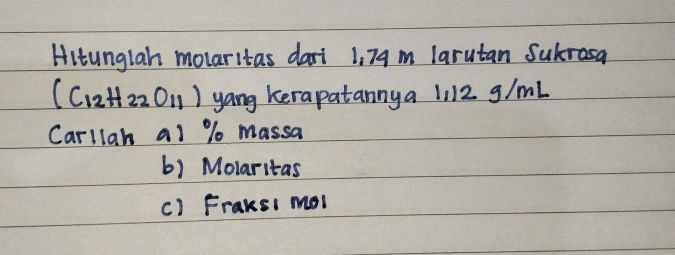 Hitunglah molaritas dari 1,74 m larutan Sukrosa
(C12H22O11) yang kerapatannya 1,12 g/mL
Carilah a) % Massa
b) Molaritas
c) Fraksi mol